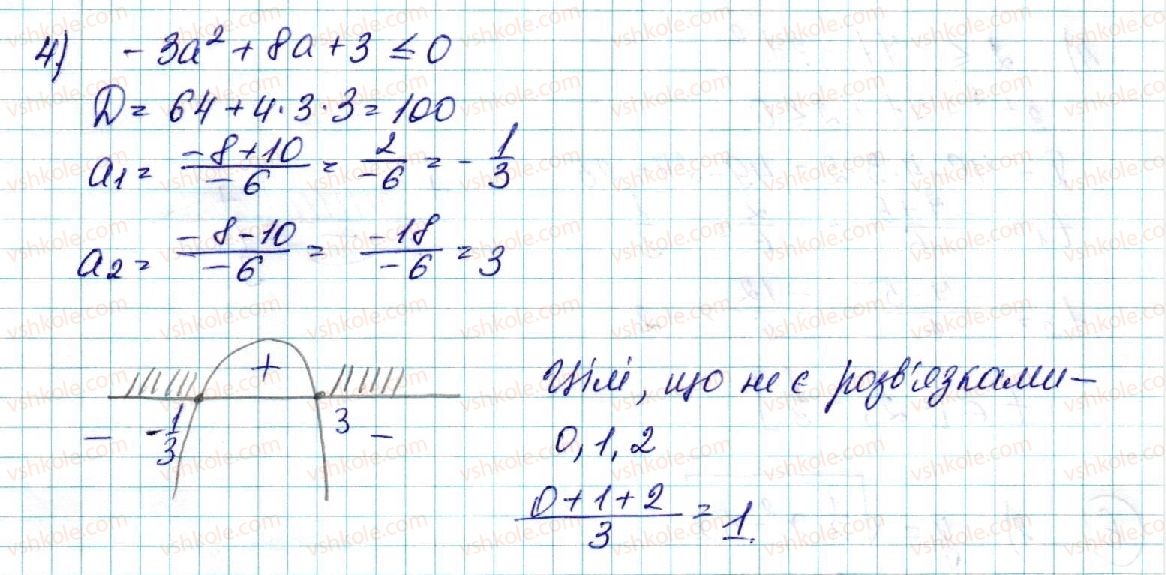 4) -3a² + 8a + 3 ≤ 0
D = 64 + 4·3·3 = 100
a₁ = (-8+10)/(-6) = 2/(-6) = -1/3
a₂ = (-8-10)/(-6) = (-18)/(-6) = 3
+
- -1/3 3 -
Цілі, що не є розв'язками –
0, 1, 2
(0+1+2)/3 = 1.
vshkole.com